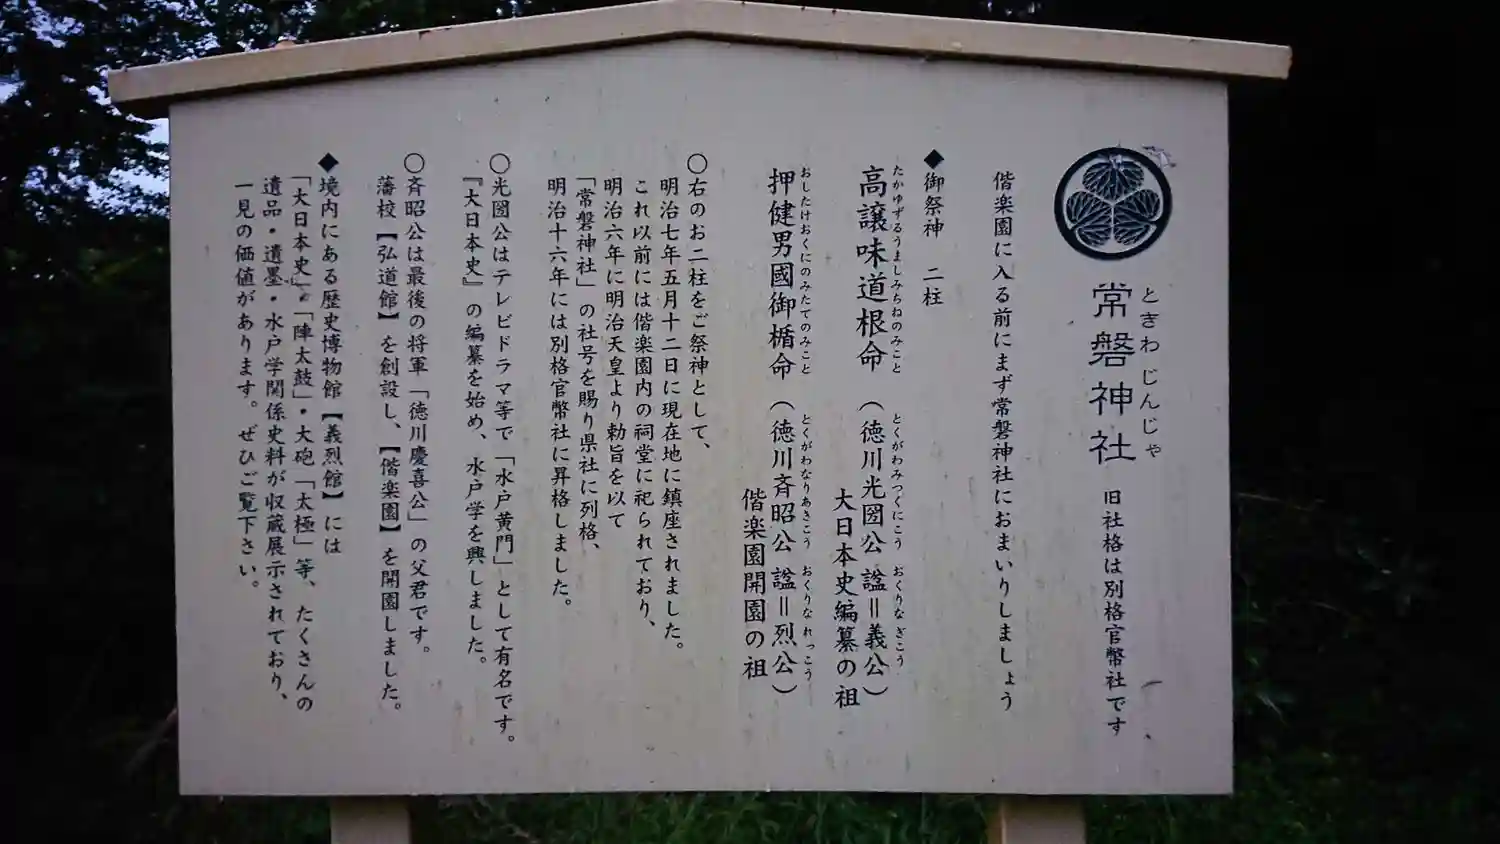 常磐神社 旧社格は別格官幣社です
ときわ じんじゃ
偕楽園に入る前にまず常磐神社におまいりしましょう
◆御祭神 二柱
高譲味道根命(徳川光圀公 諡=義公)
たかゆずるうましみちねのみこと とくがわみつくにこう おくりな ぎこう
大日本史編纂の祖
押健男國御楯命(徳川斉昭公 諡=烈公)
おしたけおくにのみたてのみこと とくがわなりあきこう おくりな れっこう
偕楽園開園の祖
○右のお二柱をご祭神として、
明治七年五月十二日に現在地に鎮座されました。
これ以前には偕楽園内の祠堂に祀られており、
明治六年に明治天皇より勅旨を以て
「常磐神社」の社号を賜り県社に列格、
明治十六年には別格官幣社に昇格しました。
○光圀公はテレビドラマ等で「水戸黄門」として有名です。
『大日本史』の編纂を始め、水戸学を興しました。
○斉昭公は最後の将軍「徳川慶喜公」の父君です。
藩校【弘道館】を創設し、【偕楽園】を開園しました。
◆境内にある歴史博物館【義烈館】には
「大日本史」・「陣太鼓」・大砲「太極」等、たくさんの
遺品・遺墨・水戸学関係史料が収蔵展示されており、
一見の価値があります。ぜひご覧下さい。